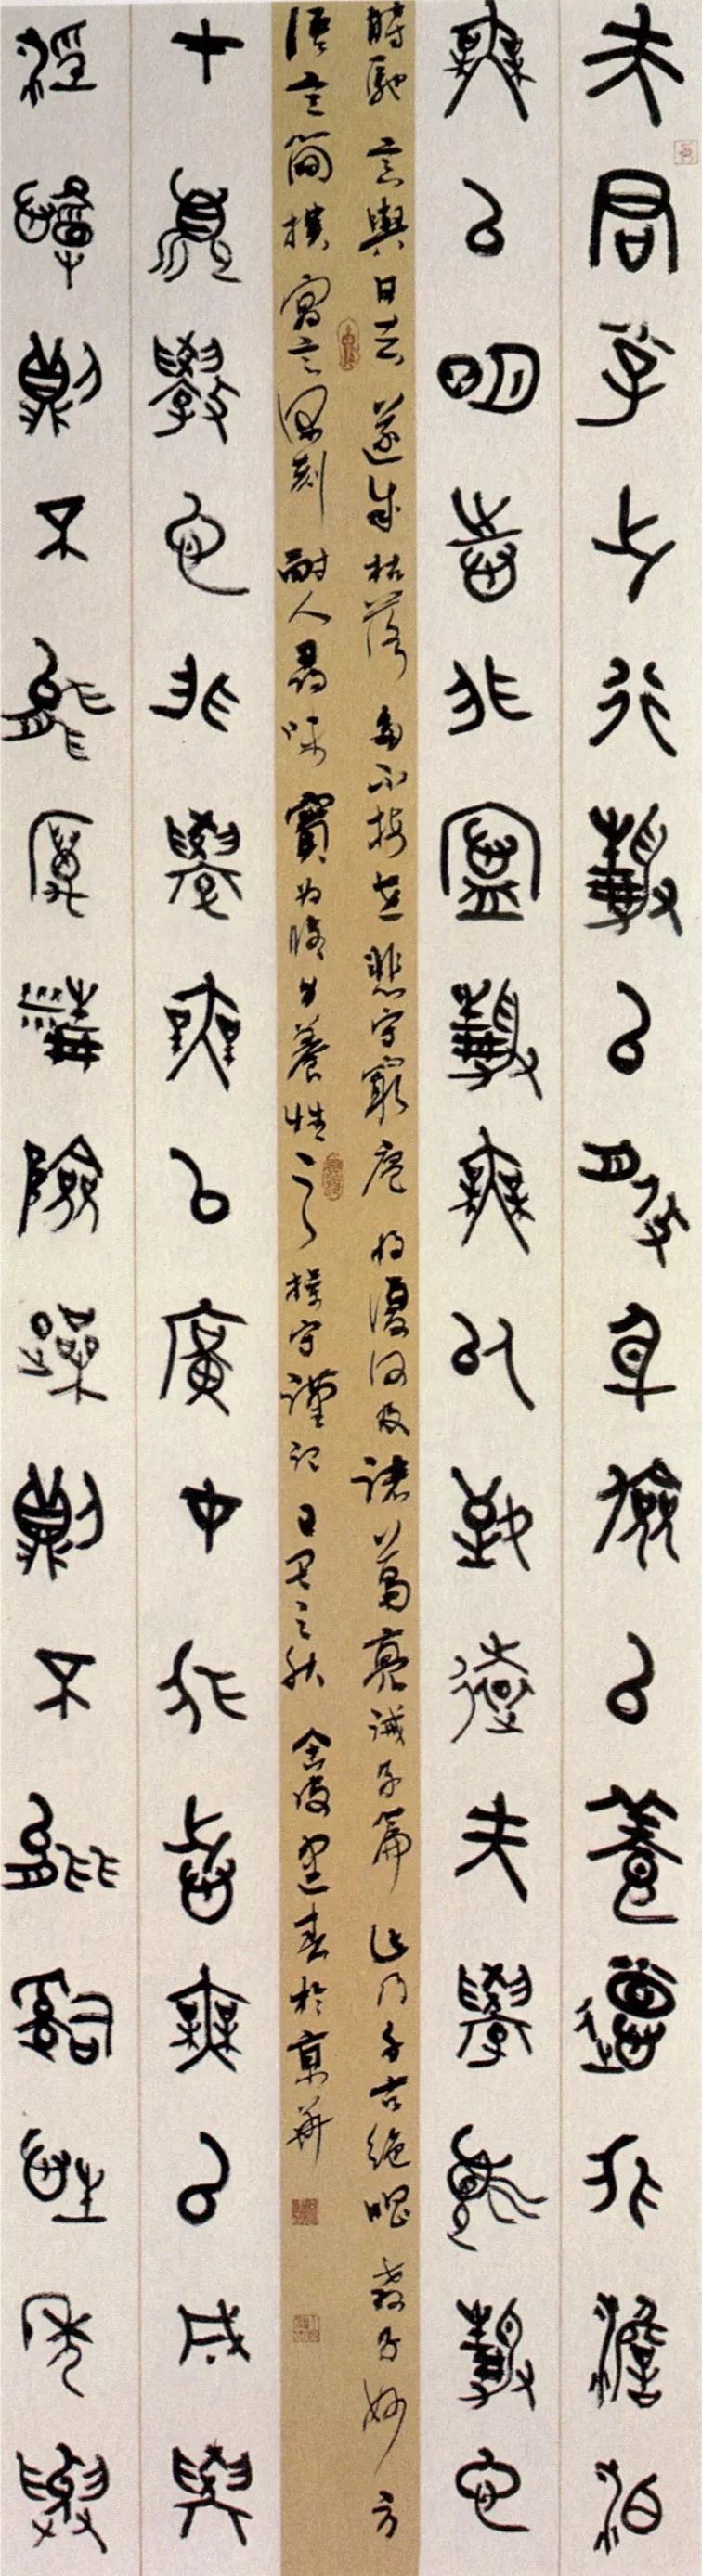 夫君子之行靜以修身儉以養德非澹泊
無以明志非寧靜無以致遠夫學須靜也
才須學也非學無以廣才非志無以成學
淫慢則不能勵精險躁則不能治性年與
時馳意與日去遂成枯落多不接世悲守窮廬將復何及諸葛亮誡子篇此乃千古絕唱教子妙方
語言簡樸寓言深刻耐人尋味實為修身養性之守謹記己丑之秋金陵春於京華